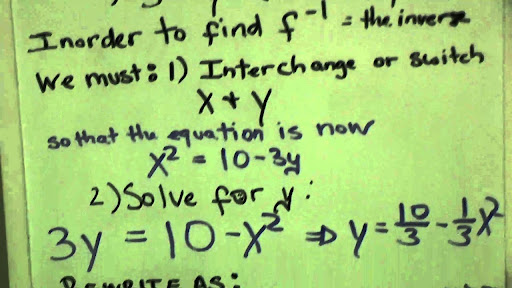 Inorder to find f⁻¹ = the inverse
We must: 1) Interchange or switch
X + Y
so that the equation is now
x² = 10 - 3y
2) Solve for y:
3y = 10 - x² ⇒ y = 10/3 - 1/3 x²
REWRITE AS: